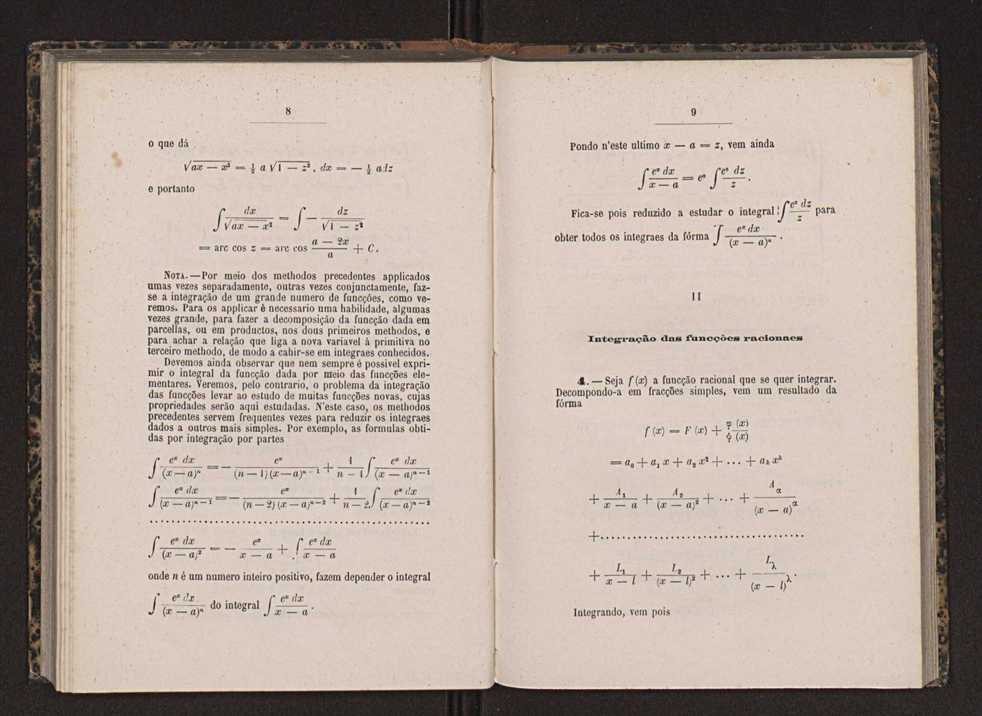 8
o que dá
√ax — x² = ½ a √1 — z², dx = — ½ adz
e portanto
∫ dx / √ax — x² = ∫ — dz / √1 — z²
= arc cos z = arc cos (a — 2x) / a + C.
NOTA.—Por meio dos methodos precedentes applicados
umas vezes separadamente, outras vezes conjunctamente, faz-
se a integração de um grande numero de funcções, como ve-
remos. Para os applicar é necessario uma habilidade, algumas
vezes grande, para fazer a decomposição da funcção dada em
parcellas, ou em productos, nos dous primeiros methodos, e
para achar a relação que liga a nova variavel á primitiva no
terceiro methodo, de modo a cahir-se em integraes conhecidos.
Devemos ainda observar que nem sempre é possivel expri-
mir o integral da funcção dada por meio das funcções ele-
mentares. Veremos, pelo contrario, o problema da integração
das funcções levar ao estudo de muitas funcções novas, cujas
propriedades serão aqui estudadas. N'este caso, os methodos
precedentes servem frequentes vezes para reduzir os integraes
dados a outros mais simples. Por exemplo, as formulas obti-
das por integração por partes
∫ eˣ dx / (x — a)ⁿ = — eˣ / (n — 1) (x — a)ⁿ⁻¹ + 1 / (n — 1) ∫ eˣ dx / (x — a)ⁿ⁻¹
∫ eˣ dx / (x — a)ⁿ⁻¹ = — eˣ / (n — 2) (x — a)ⁿ⁻² + 1 / (n — 2) ∫ eˣ dx / (x — a)ⁿ⁻²
..................................................
∫ eˣ dx / (x — a)² = — eˣ / (x — a) + ∫ eˣ dx / (x — a)
onde n é um numero inteiro positivo, fazem depender o integral
∫ eˣ dx / (x — a)ⁿ do integral ∫ eˣ dx / (x — a).
9
Pondo n'este ultimo x — a = z, vem ainda
∫ eˣ dx / (x — a) = eᵃ ∫ eᶻ dz / z.
Fica-se pois reduzido a estudar o integral ∫ eᶻ dz / z para
obter todos os integraes da fórma ∫ eˣ dx / (x — a)ⁿ.
II
Integração das funcções racionaes
4. — Seja f (x) a funcção racional que se quer integrar.
Decompondo-a em fracções simples, vem um resultado da
fórma
f (x) = F (x) + φ (x) / ψ (x)
= a₀ + a₁ x + a₂ x² + ... + aₖ xᵏ
+ A₁ / (x — a) + A₂ / (x — a)² + ... + A_α / (x — a)^α
+....................................
+ L₁ / (x — l) + L₂ / (x — l)² + ... + L_λ / (x — l)^λ.
Integrando, vem pois